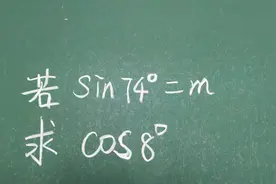 若 sin74°=m
求 cos8°